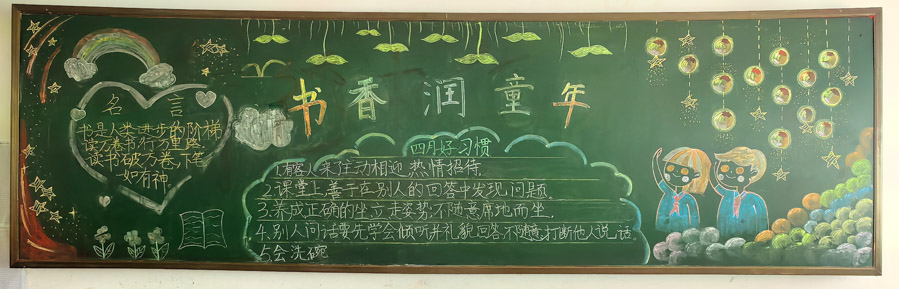 书香润童年
名言
书是人类进步的阶梯
读万卷书行万里路
读书破万卷,下笔
如有神
四月好习惯
1.有客人来往动相迎,热情招待.
2.课堂上善于在别人的回答中发现问题.
3.养成正确的坐立走姿势;不随意席地而坐.
4.别人问话要先学会倾听并礼貌回答.不随意打断他人说话
5.会洗碗